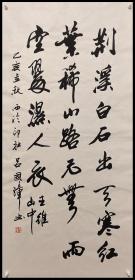 荆溪白石出天寒红
叶稀山路元无雨
空翠湿人衣 王维
山中
乙亥立秋西泠印社吕国璋书